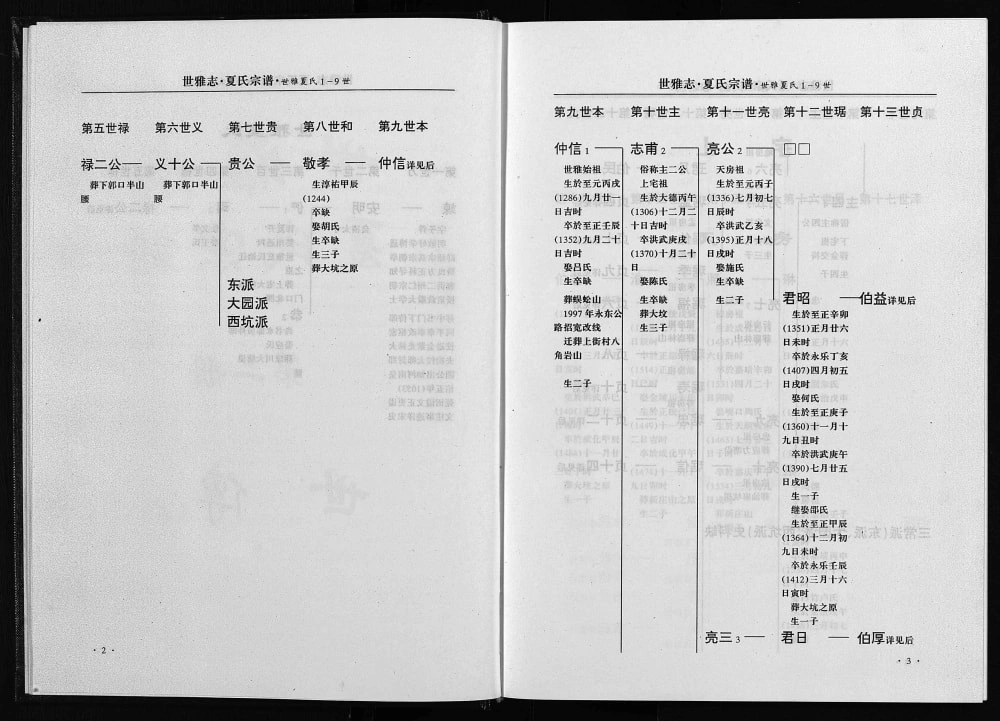 世雅志·夏氏宗谱·世雅夏氏1-9世
第五世禄 第六世义 第七世贵 第八世和 第九世本
禄二公 义十公 贵公 敬孝 仲信详见后
葬下郭口半山
腰
葬下郭口半山
腰
生淳祐甲辰
(1244)
卒缺
娶胡氏
生卒缺
生三子
葬大坑之原
东派
大园派
西坑派
·2·
世雅志·夏氏宗谱·世雅夏氏1-9世
第九世本 第十世主 第十一世亮 第十二世琚 第十三世贞
仲信1 志甫2 亮公2 □□
世雅始祖
生於至元丙戌
(1286)九月廿一
日吉时
卒於至正壬辰
(1352)九月二十
日吉时
娶吕氏
生卒缺
葬蜈蚣山
1997年永东公
路招宽改线
迁葬上街村八
角岩山
生二子
俗称主二公
上宅祖
生於大德丙午
(1306)十二月二
十日吉时
卒洪武庚戌
(1370)十月二十
日
娶陈氏
生卒缺
葬大坟
生三子
天房祖
生於至元丙子
(1336)七月初七
日辰时
卒洪武乙亥
(1395)正月十八
日戌时
娶施氏
生卒缺
生二子
君昭 伯益详见后
生於至正辛卯
(1351)正月廿六
日未时
卒於永乐丁亥
(1407)四月初五
日戌时
娶何氏
生於至正庚子
(1360)十一月十
九日丑时
卒於洪武庚午
(1390)七月廿五
日戌时
生一子
继娶邵氏
生於至正甲辰
(1364)十二月初
九日未时
卒於永乐壬辰
(1412)三月十六
日寅时
葬大坑之原
生一子
亮三3 君日 伯厚详见后
·3·